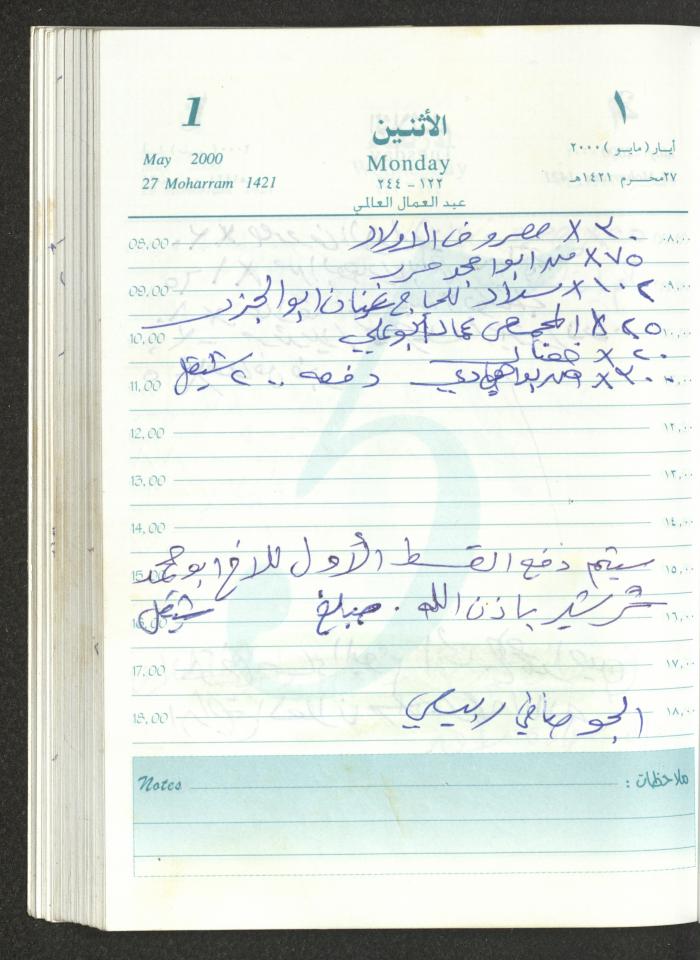 1
١
الأثنين
May 2000
Monday
أيار (مايو) ٢٠٠٠
27 Moharram 1421
١٢٢-٢٤٤
٢٧ محرم ١٤٢١هـ
عيد العمال العالمي
08,00 ٣٠ X مصروف الاولاد ٠٨,٠٠
٧٥ X عند ابو احمد
09,00 ١٠٢ X سداد للحاج عدنان ابو الجزر ٠٩,٠٠
10,00 ٢٥ X المحمص عماد ابو علي ١٠,٠٠
٢٠ X
11,00 ٣٠ X دفعه ٢٠٠ شيقل ١١,٠٠
12,00 ١٢,٠٠
13,00 ١٣,٠٠
14,00 ١٤,٠٠
سيتم دفع القسط الأول للاخ ابو محمد
15,00 ١٥,٠٠
شرشير باذن الله . مبلغ شيقل
16,00 ١٦,٠٠
17,00 ١٧,٠٠
الجو صافي ربيعي
18,00 ١٨,٠٠
Notes ملاحظات :